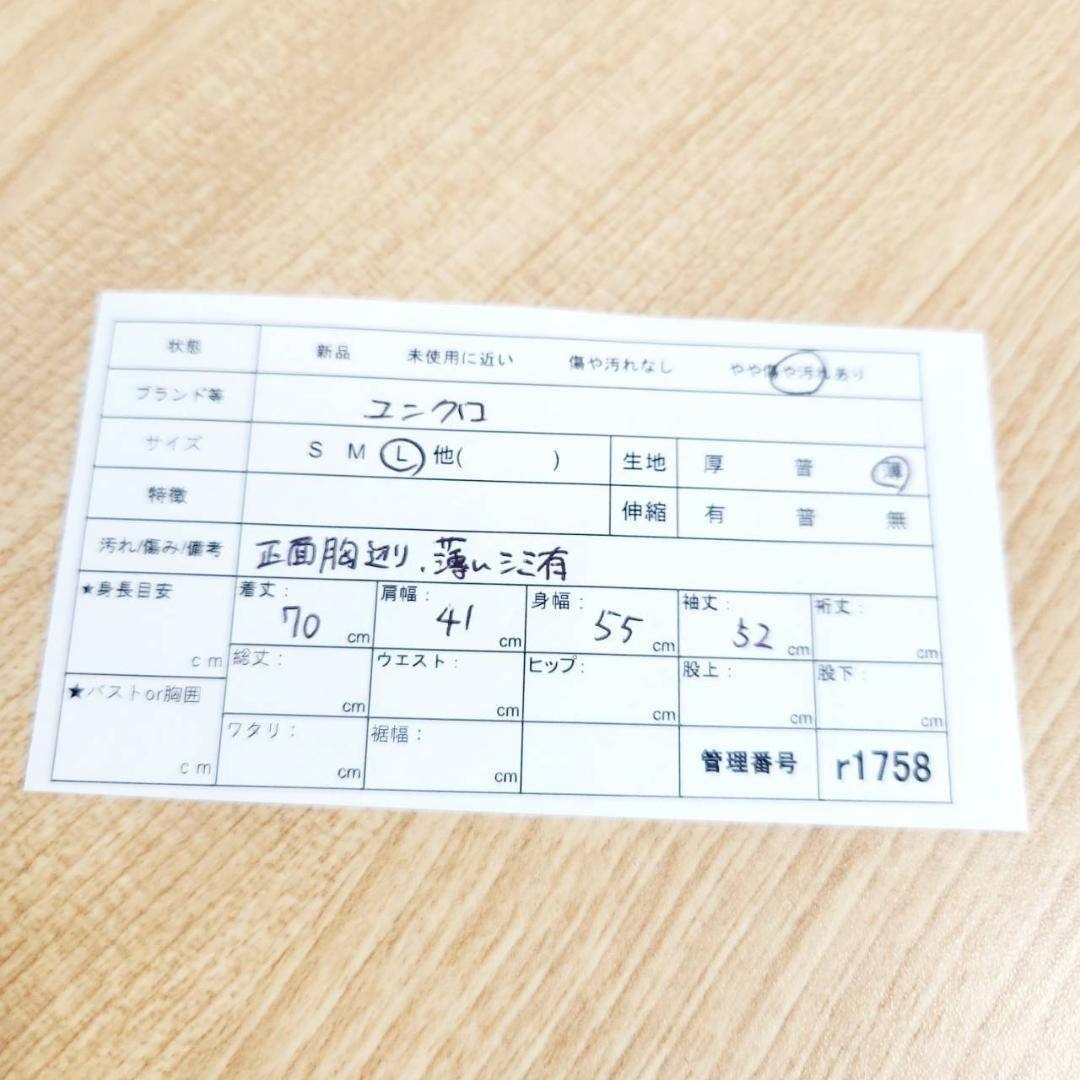 状態 新品 未使用に近い 傷や汚れなし やや傷や汚れあり
ブランド等 ユニクロ
サイズ S M L 他( ) 生地 厚 普 薄
特徴 伸縮 有 普 無
汚れ/傷み/備考 正面胸辺り、薄いシミ有
★身長目安 cm 着丈: 70 cm 肩幅: 41 cm 身幅: 55 cm 袖丈: 52 cm 裄丈: cm
総丈: cm ウエスト: cm ヒップ: cm 股上: cm 股下: cm
★バストor胸囲 cm ワタリ: cm 裾幅: cm 管理番号 r1758